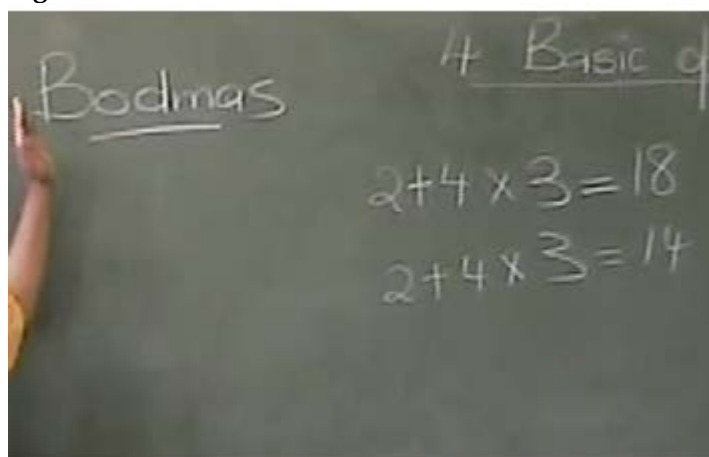 Bodmas
4 Basic
2+4×3=18
2+4×3=14